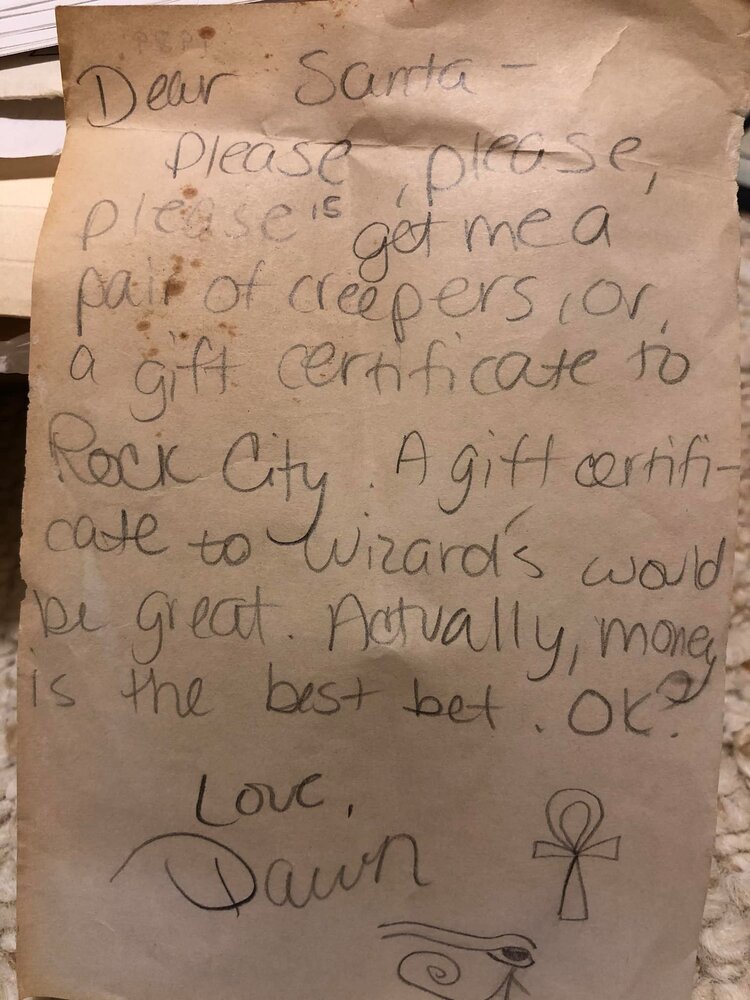 Dear Santa -
Please, please,
please 15 get me a
pair of creepers, or,
a gift certificate to
Rock City. A gift certifi-
cate to Wizard's would
be great. Actually, money
is the best bet. OK?
Love,
Dawn